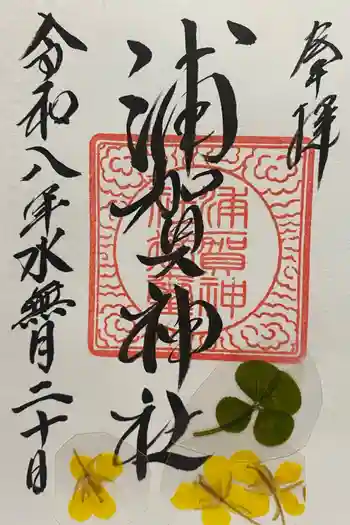 奉拝
浦賀神社
浦賀神
令和八年水無月二十日